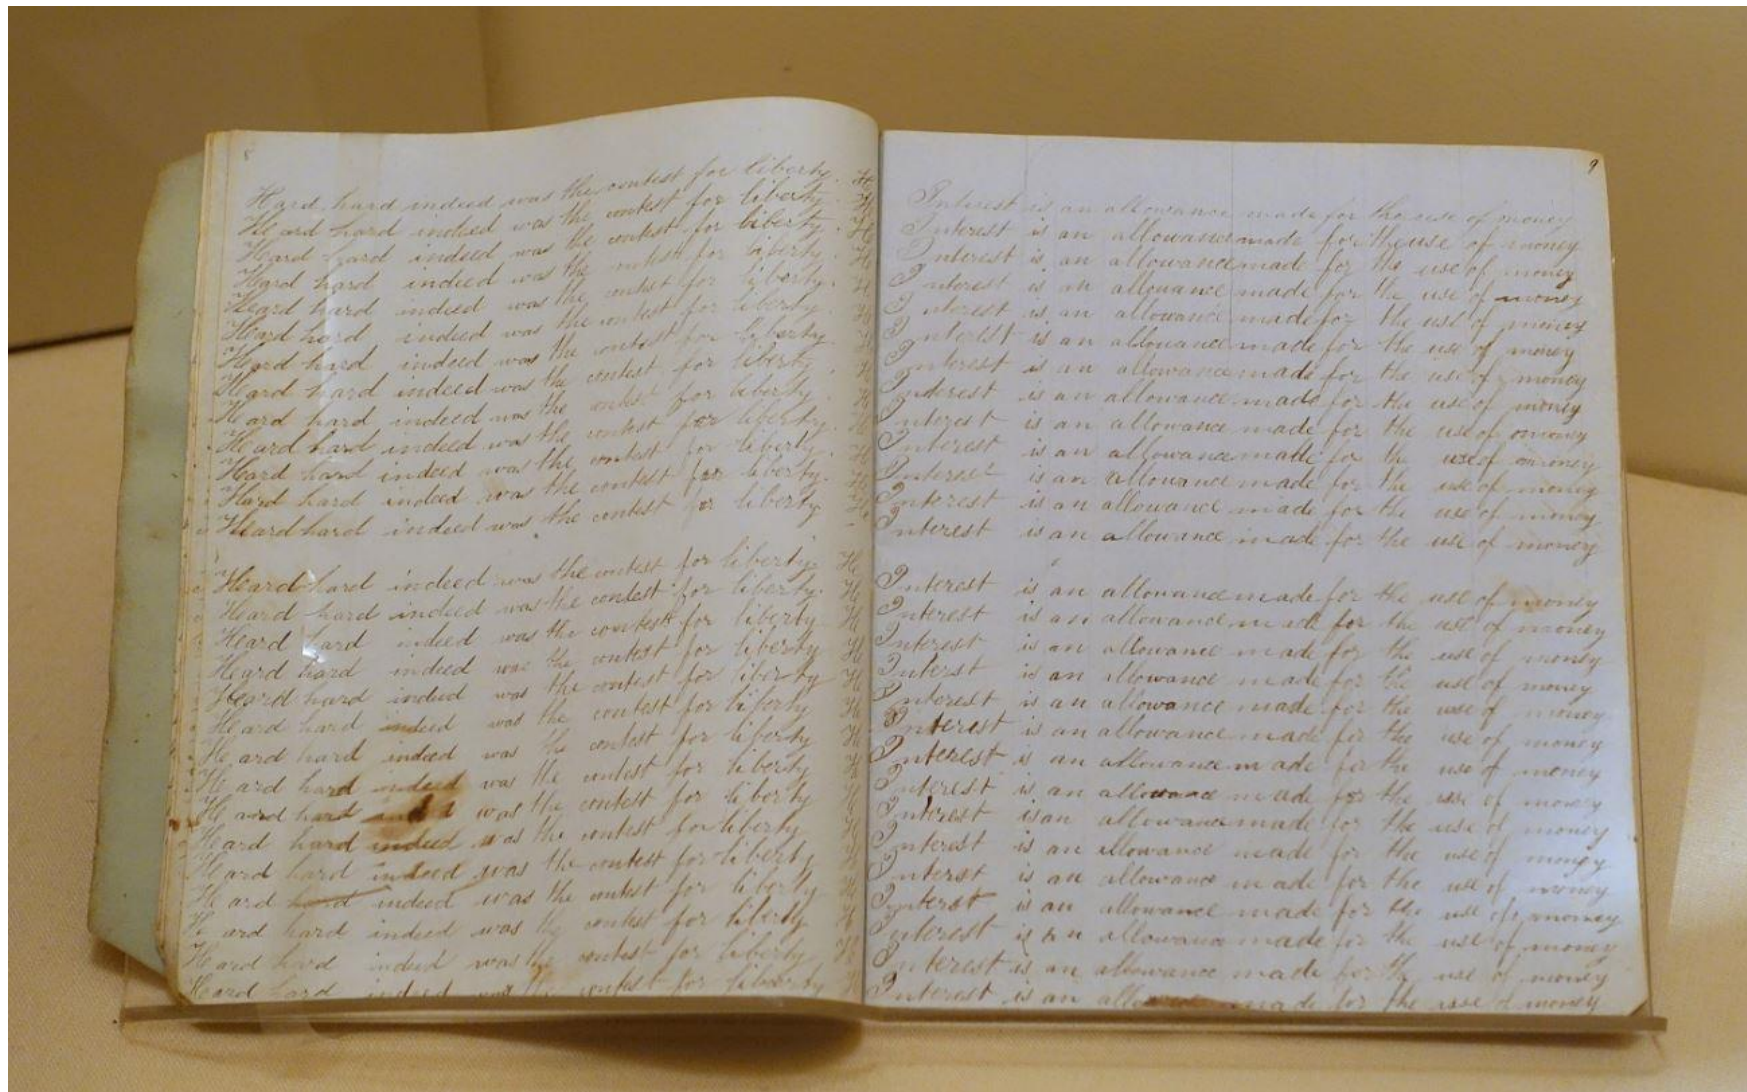 8
Hard hard indeed was the contest for liberty.
Heard hard indeed was the contest for liberty.
Heard hard indeed was the contest for liberty.
Heard hard indeed was the contest for liberty.
Heard hard indeed was the contest for liberty.
Heard hard indeed was the contest for liberty.
Heard hard indeed was the contest for liberty
Heard hard indeed was the contest for liberty.
Heard hard indeed was the contest for liberty.
Heard hard indeed was the contest for liberty.
Hard hard indeed was the contest for liberty.
Hard hard indeed was the contest for liberty.
Heard hard indeed was the contest for liberty
Heard hard indeed was the contest for liberty.
Heard hard indeed was the contest for liberty.
Heard hard indeed was the contest for liberty
Heard hard indeed was the contest for liberty
Heard hard indeed was the contest for liberty
Heard hard indeed was the contest for liberty
Heard hard indeed was the contest for liberty
Heard hard indeed was the contest for liberty
Heard hard was the contest for liberty
Heard hard indeed was the contest for liberty
Heard hard indeed was the contest for liberty
Heard hard indeed was the contest for liberty
Hard hard indeed was the contest for liberty
Heard hard indeed was the contest for liberty
Heard hard indeed was the contest for liberty
9
Interest is an allowance made for the use of money
Interest is an allowance made for the use of money
Interest is an allowance made for the use of money
Interest is an allowance made for the use of money
Interest is an allowance made for the use of money
Interest is an allowance made for the use of money
Interest is an allowance made for the use of money
Interest is an allowance made for the use of money
Interest is an allowance made for the use of money
Interest is an allowance made for the use of money
Interest is an allowance made for the use of money
Interest is an allowance made for the use of money
Interest is an allowance made for the use of money
Interest is an allowance made for the use of money
Interest is an allowance made for the use of money
Interest is an allowance made for the use of money
Interst is an allowance made for the use of money
Interest is an allowance made for the use of money
Interest is an allowance made for the use of money
Interest is an allowance made for the use of money
Interest is an allowance made for the use of money
Interest is an allowance made for the use of money
Interest is an allowance made for the use of money
Interest is an allowance made for the use of money
Interest is an allowance made for the use of money
Interest is an allowance made for the use of money
Interest is an allowance made for the use of money
Interest is an made for the use of money